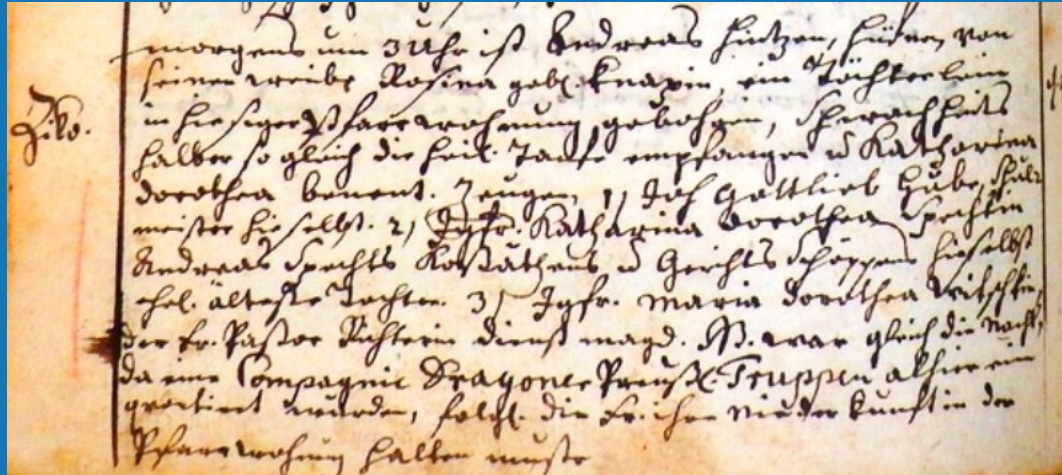 morgens um 3 Uhr ist Andreas Hintzen, Hüfner, von
seinem Weibe Rosina gebl. Knapin, ein Töchterlein
Ziko.
in hiesiger Pfarrwohnung gebohren, Schwachheits
halber so gleich die heil. Taufe empfangen u Katharina
dorothea benent. Zeugen 1) Joh Gottlieb Hübe, Schul
meister hieselbst. 2) Jgfr. Katharina dorothea Spechtin
Andreas Spechts Koßäthens u Gerichts Schöppens hieselbst
ehel. älteste Tochter. 3) Jgfr. Maria dorothea
der Fr. Pastor Richterin dienst magd. NB. war gleich die Nacht,
da eine Compagnie Dragoner Preußl. Truppen alhier ein
quartiert wurden, folgl. die Fr. ihre Niederkunft in der
Pfarrwohnung halten muste